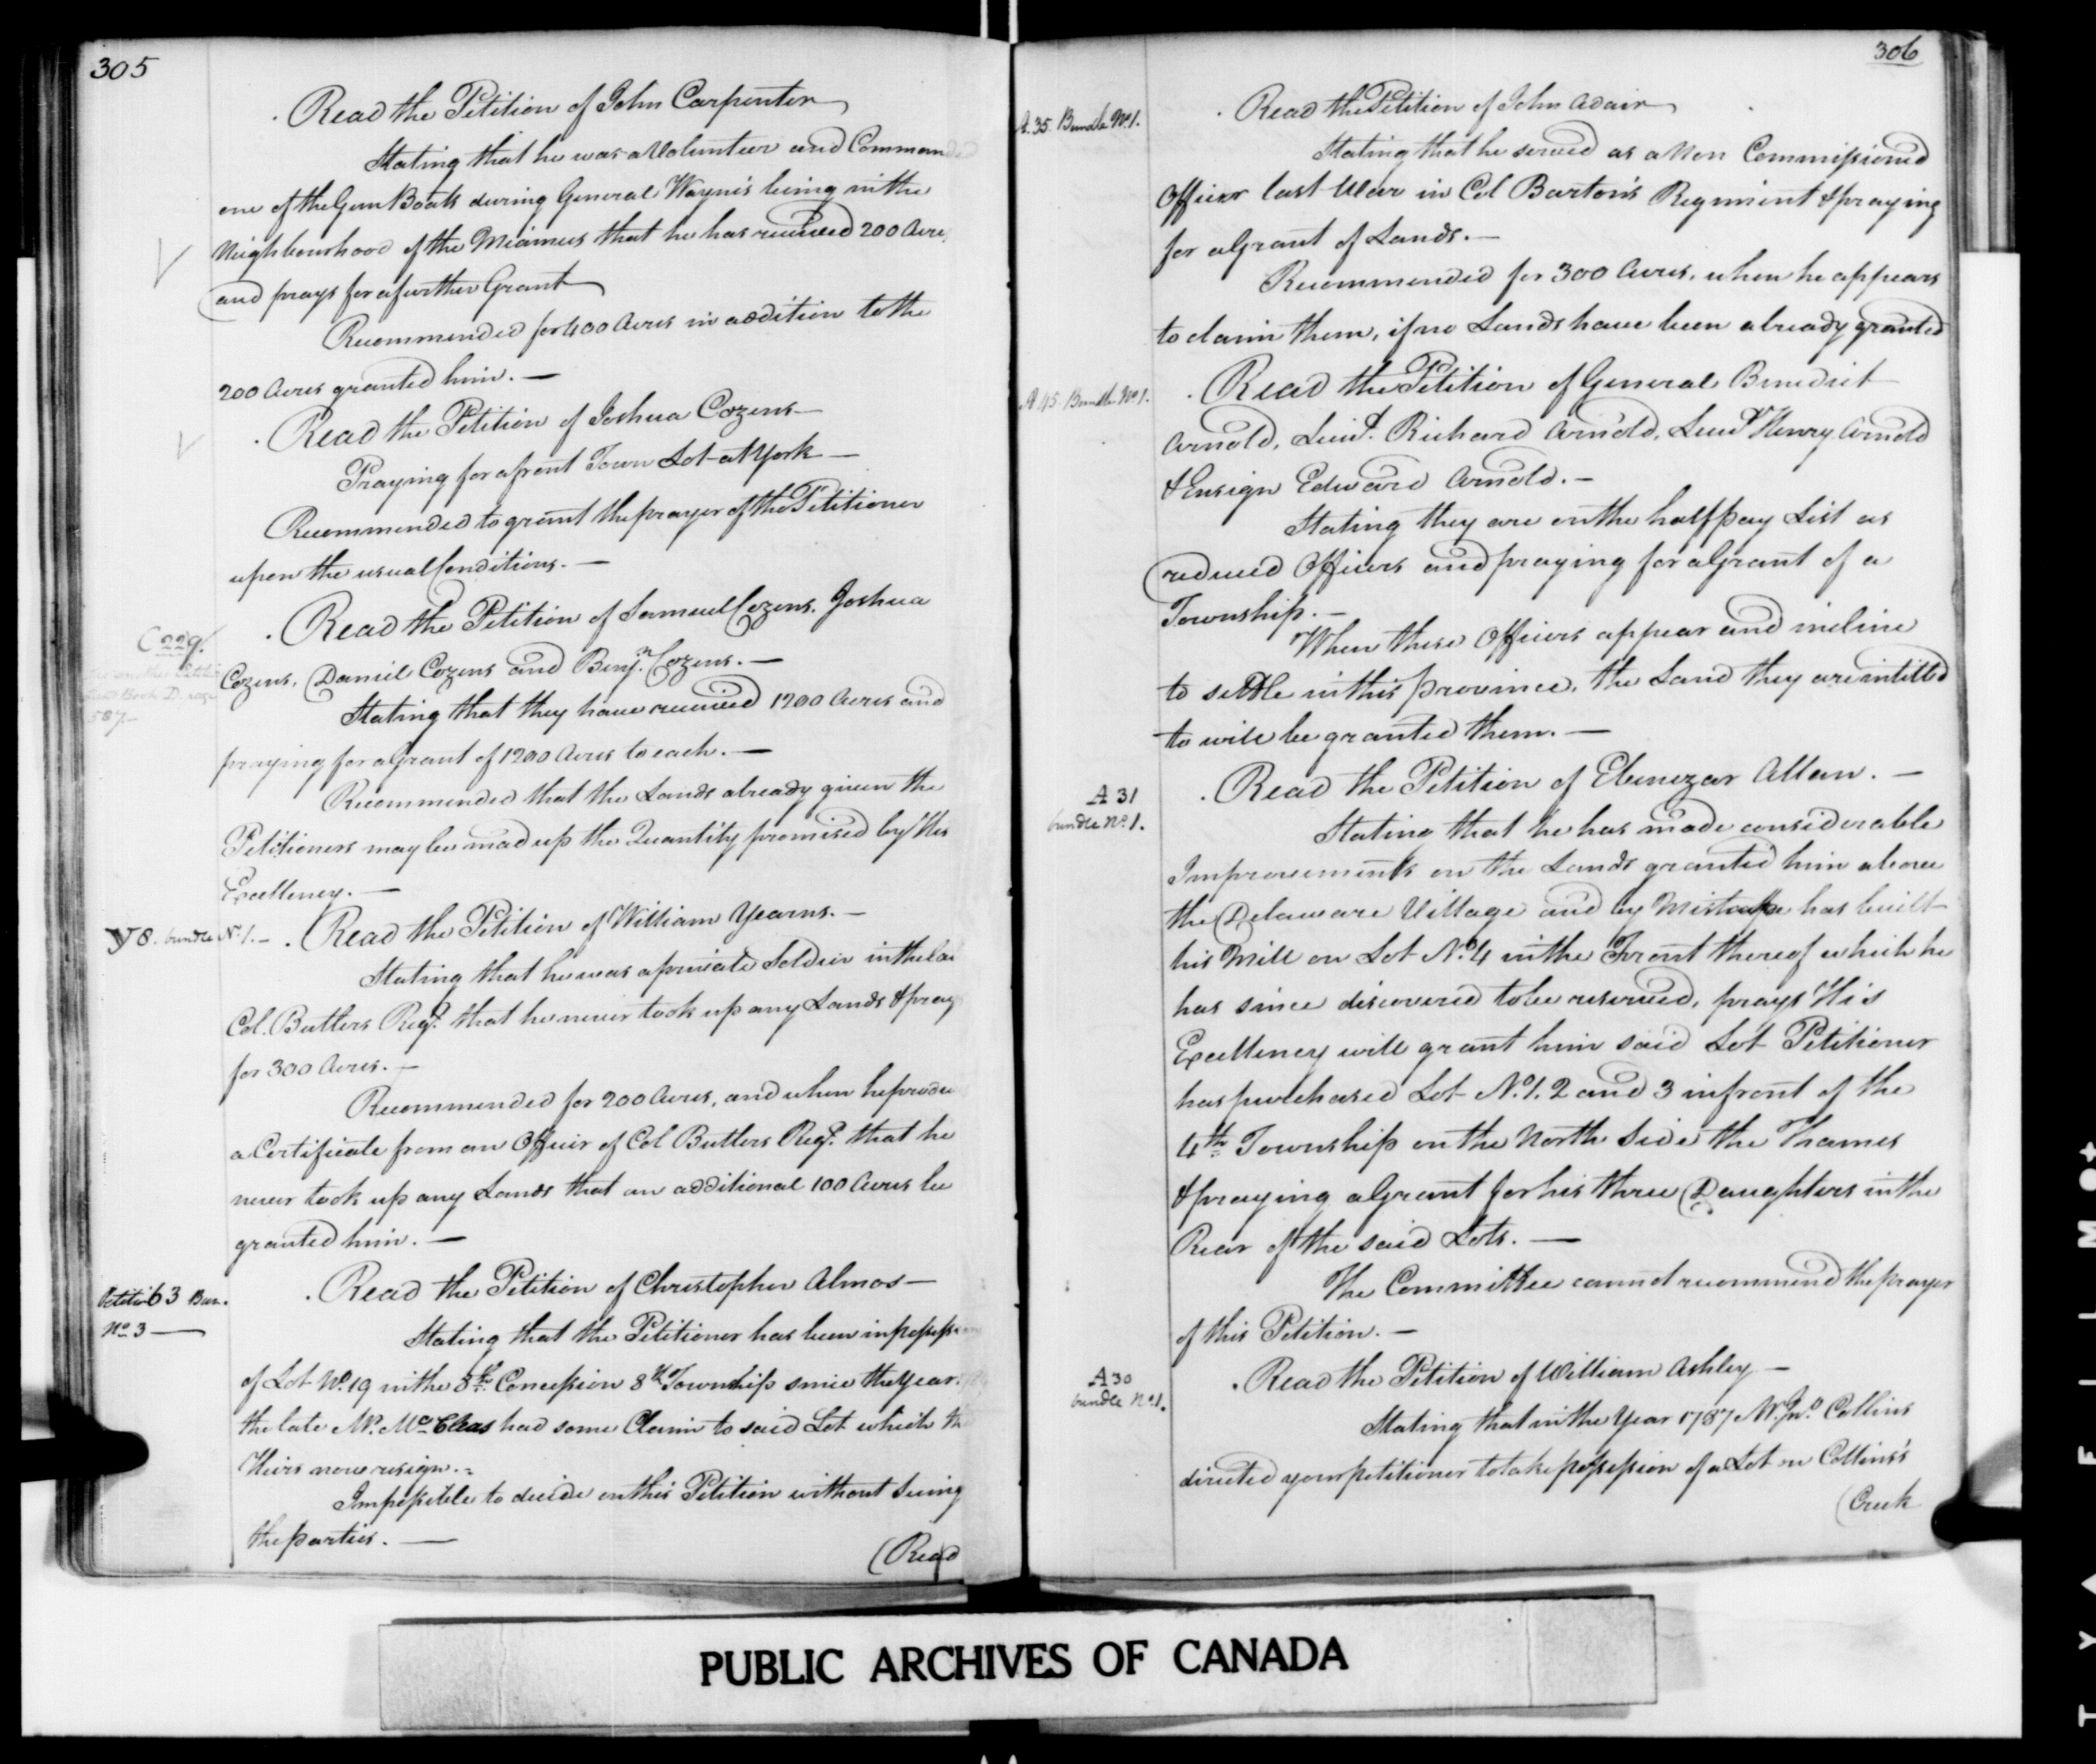 305
Read the Petition of John Carpenter
Stating that he was a Volunteer and Commanded
one of the Gun Boats during General Wayne's being in the
Neighbourhood of the Miamies that he has received 200 Acres,
and prays for a further Grant
Recommended for 400 Acres in addition to the
200 Acres granted him. —
Read the Petition of Joshua Cozens —
Praying for a front Town Lot at York —
Recommended to grant the prayer of the Petitioner
upon the usual Conditions. —
C 229.
Book D. page
587 —
Read the Petition of Samuel Cozens, Joshua
Cozens, Daniel Cozens and Benjn. Cozens. —
Stating that they have received 1200 Acres and
praying for a Grant of 1200 Acres to each. —
Recommended that the Lands already given the
Petitioners may be made up the Quantity promised by His
Excellency. —
Y 8. bundle No. 1. —
Read the Petition of William Yearns. —
Stating that he was a private Soldier in the la
Col. Butlers Regt. that he never took up any Lands & pray
for 300 Acres. —
Recommended for 200 Acres, and when he produ
a Certificate from an Officer of Col Butlers Regt. that he
never took up any Lands that an additional 100 Acres be
granted him. —
Petition 63 Bun.
No. 3 —
Read the Petition of Christopher Almos —
Stating that the Petitioner has been in possession
of Lot No. 19 in the 8th. Concession 8th Township since the Year
the late Mr. Mc Cleas had some Claim to said Lot which the
Heirs now resign. =
Impossible to decide on this Petition without seeing
the parties. —
(Read
306
A. 35 Bundle No. 1.
Read the Petition of John Adair
Stating that he served as a Non Commissioned
Officer last War in Col Barton's Regiment & praying
for a Grant of Lands. —
Recommended for 300 Acres, when he appears
to claim them, if no Lands have been already granted
A 45 Bundle No. 1.
Read the Petition of General Benedict
Arnold, Lieut. Richard Arnold, Lieut. Henry Arnold
& Ensign Edward Arnold. —
Stating they are on the half pay List as
reduced Officers and praying for a Grant of a
Township. —
When these Officers appear and incline
to settle in this province, the Land they are intitled
to will be granted them. —
A 31
bundle No. 1.
Read the Petition of Ebenezar Allan. —
Stating that he has made considerable
Improvements on the Lands granted him above
the Delaware Village and by Mistake has built
his Mill on Lot No. 4 in the Front thereof which he
has since discovered to be reserved, prays His
Excellency will grant him said Lot Petitioner
has purchased Lot No. 1. 2 and 3 in front of the
4th Township on the North Side the Thames
& praying a Grant for his three Daughters in the
Rear of the said Lots. —
The Committee cannot recommend the prayer
of this Petition. —
A 30
bundle No. 1.
Read the Petition of William Ashley —
Stating that in the Year 1787 Mr. Jno. Collins
directed your petitioner to take possession of a Lot on Collins's
(Creek
PUBLIC ARCHIVES OF CANADA